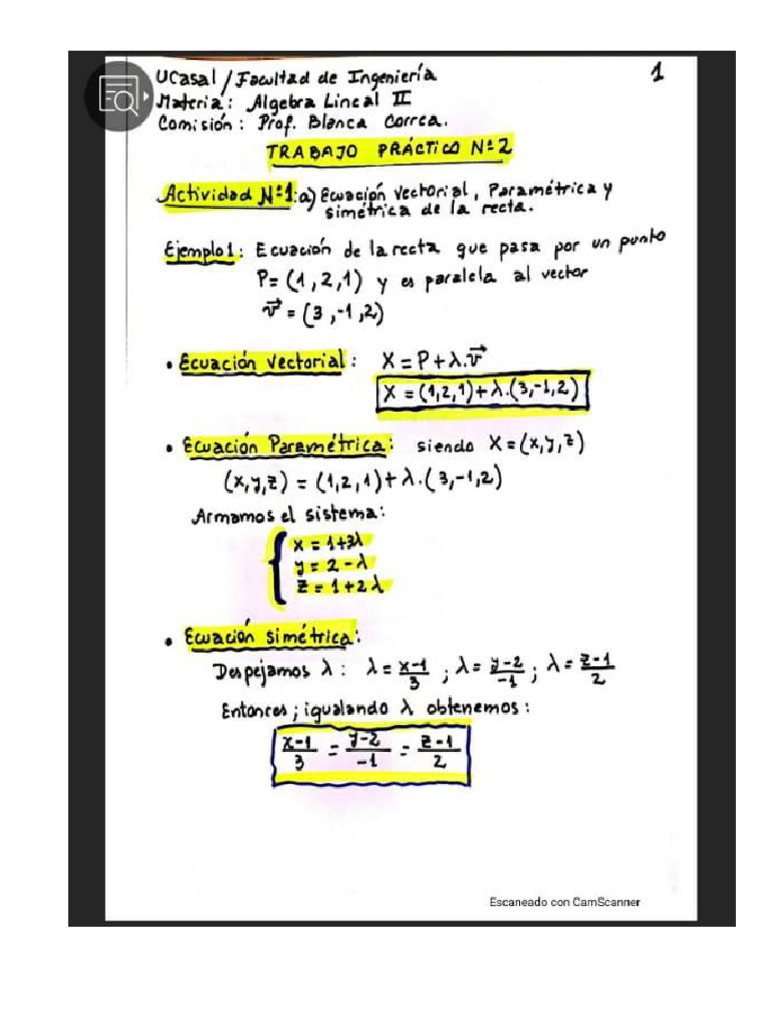 UCasal / Facultad de Ingeniería 1
Materia: Algebra Lineal II
Comisión: Prof. Blanca Correa.
TRABAJO PRÁCTICO Nº2
Actividad Nº1: a) Ecuación vectorial, Paramétrica y
simétrica de la recta.
Ejemplo1: Ecuación de la recta que pasa por un punto
P=(1,2,1) y es paralela al vector
v⃗ = (3,-1,2)
• Ecuación vectorial: X = P+λ.v⃗
X = (1,2,1)+λ.(3,-1,2)
• Ecuación Paramétrica: siendo X=(x,y,z)
(x,y,z) = (1,2,1)+λ.(3,-1,2)
Armamos el sistema:
x = 1+3λ
y = 2-λ
z = 1+2λ
• Ecuación simétrica:
Despejamos λ: λ = x-1/3 ; λ = y-2/-1 ; λ = z-1/2
Entonces; igualando λ obtenemos:
x-1/3 = y-2/-1 = z-1/2
Escaneado con CamScanner